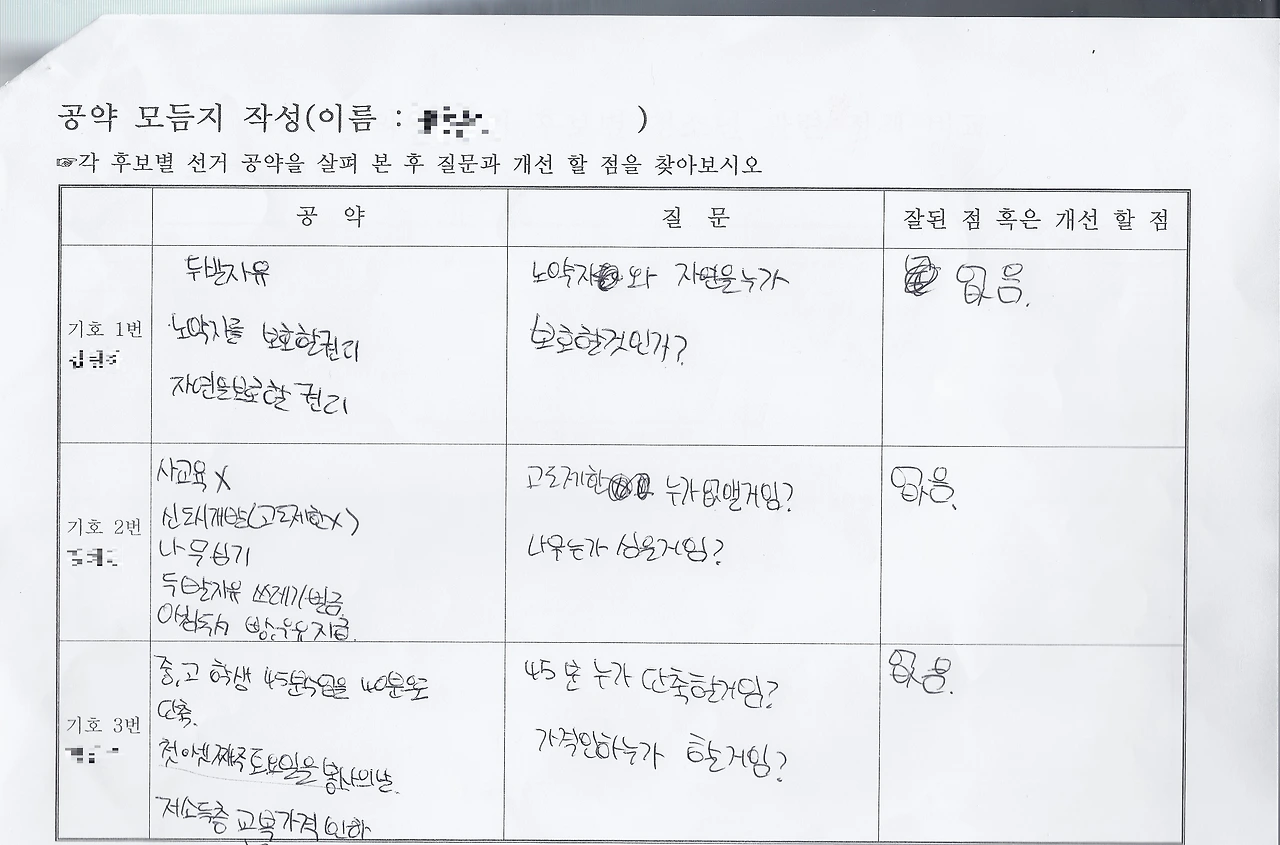 공약 모듬지 작성(이름 : )
☞각 후보별 선거 공약을 살펴 본 후 질문과 개선 할 점을 찾아보시오
공 약
질 문
잘된 점 혹은 개선 할 점
기호 1번
두발자유
노약자를 보호할권리
자연을보호할 권리
노약자 와 자연을누가
보호할것인가?
없음.
기호 2번
사교육 X
신도시개발(고도제한x)
나무심기
두발자유 쓰레기벌금.
아침독서 빵,우유지급.
고도제한 누가없앨거임?
나무누가 심을거임?
없음.
기호 3번
중,고 학생 45분수업을 40분으로
단축.
첫아셋째주토요일을 봉사의날.
저소득층 교복가격 인하
45분 누가 단축할거임?
가격인하누가 할거임?
없음.